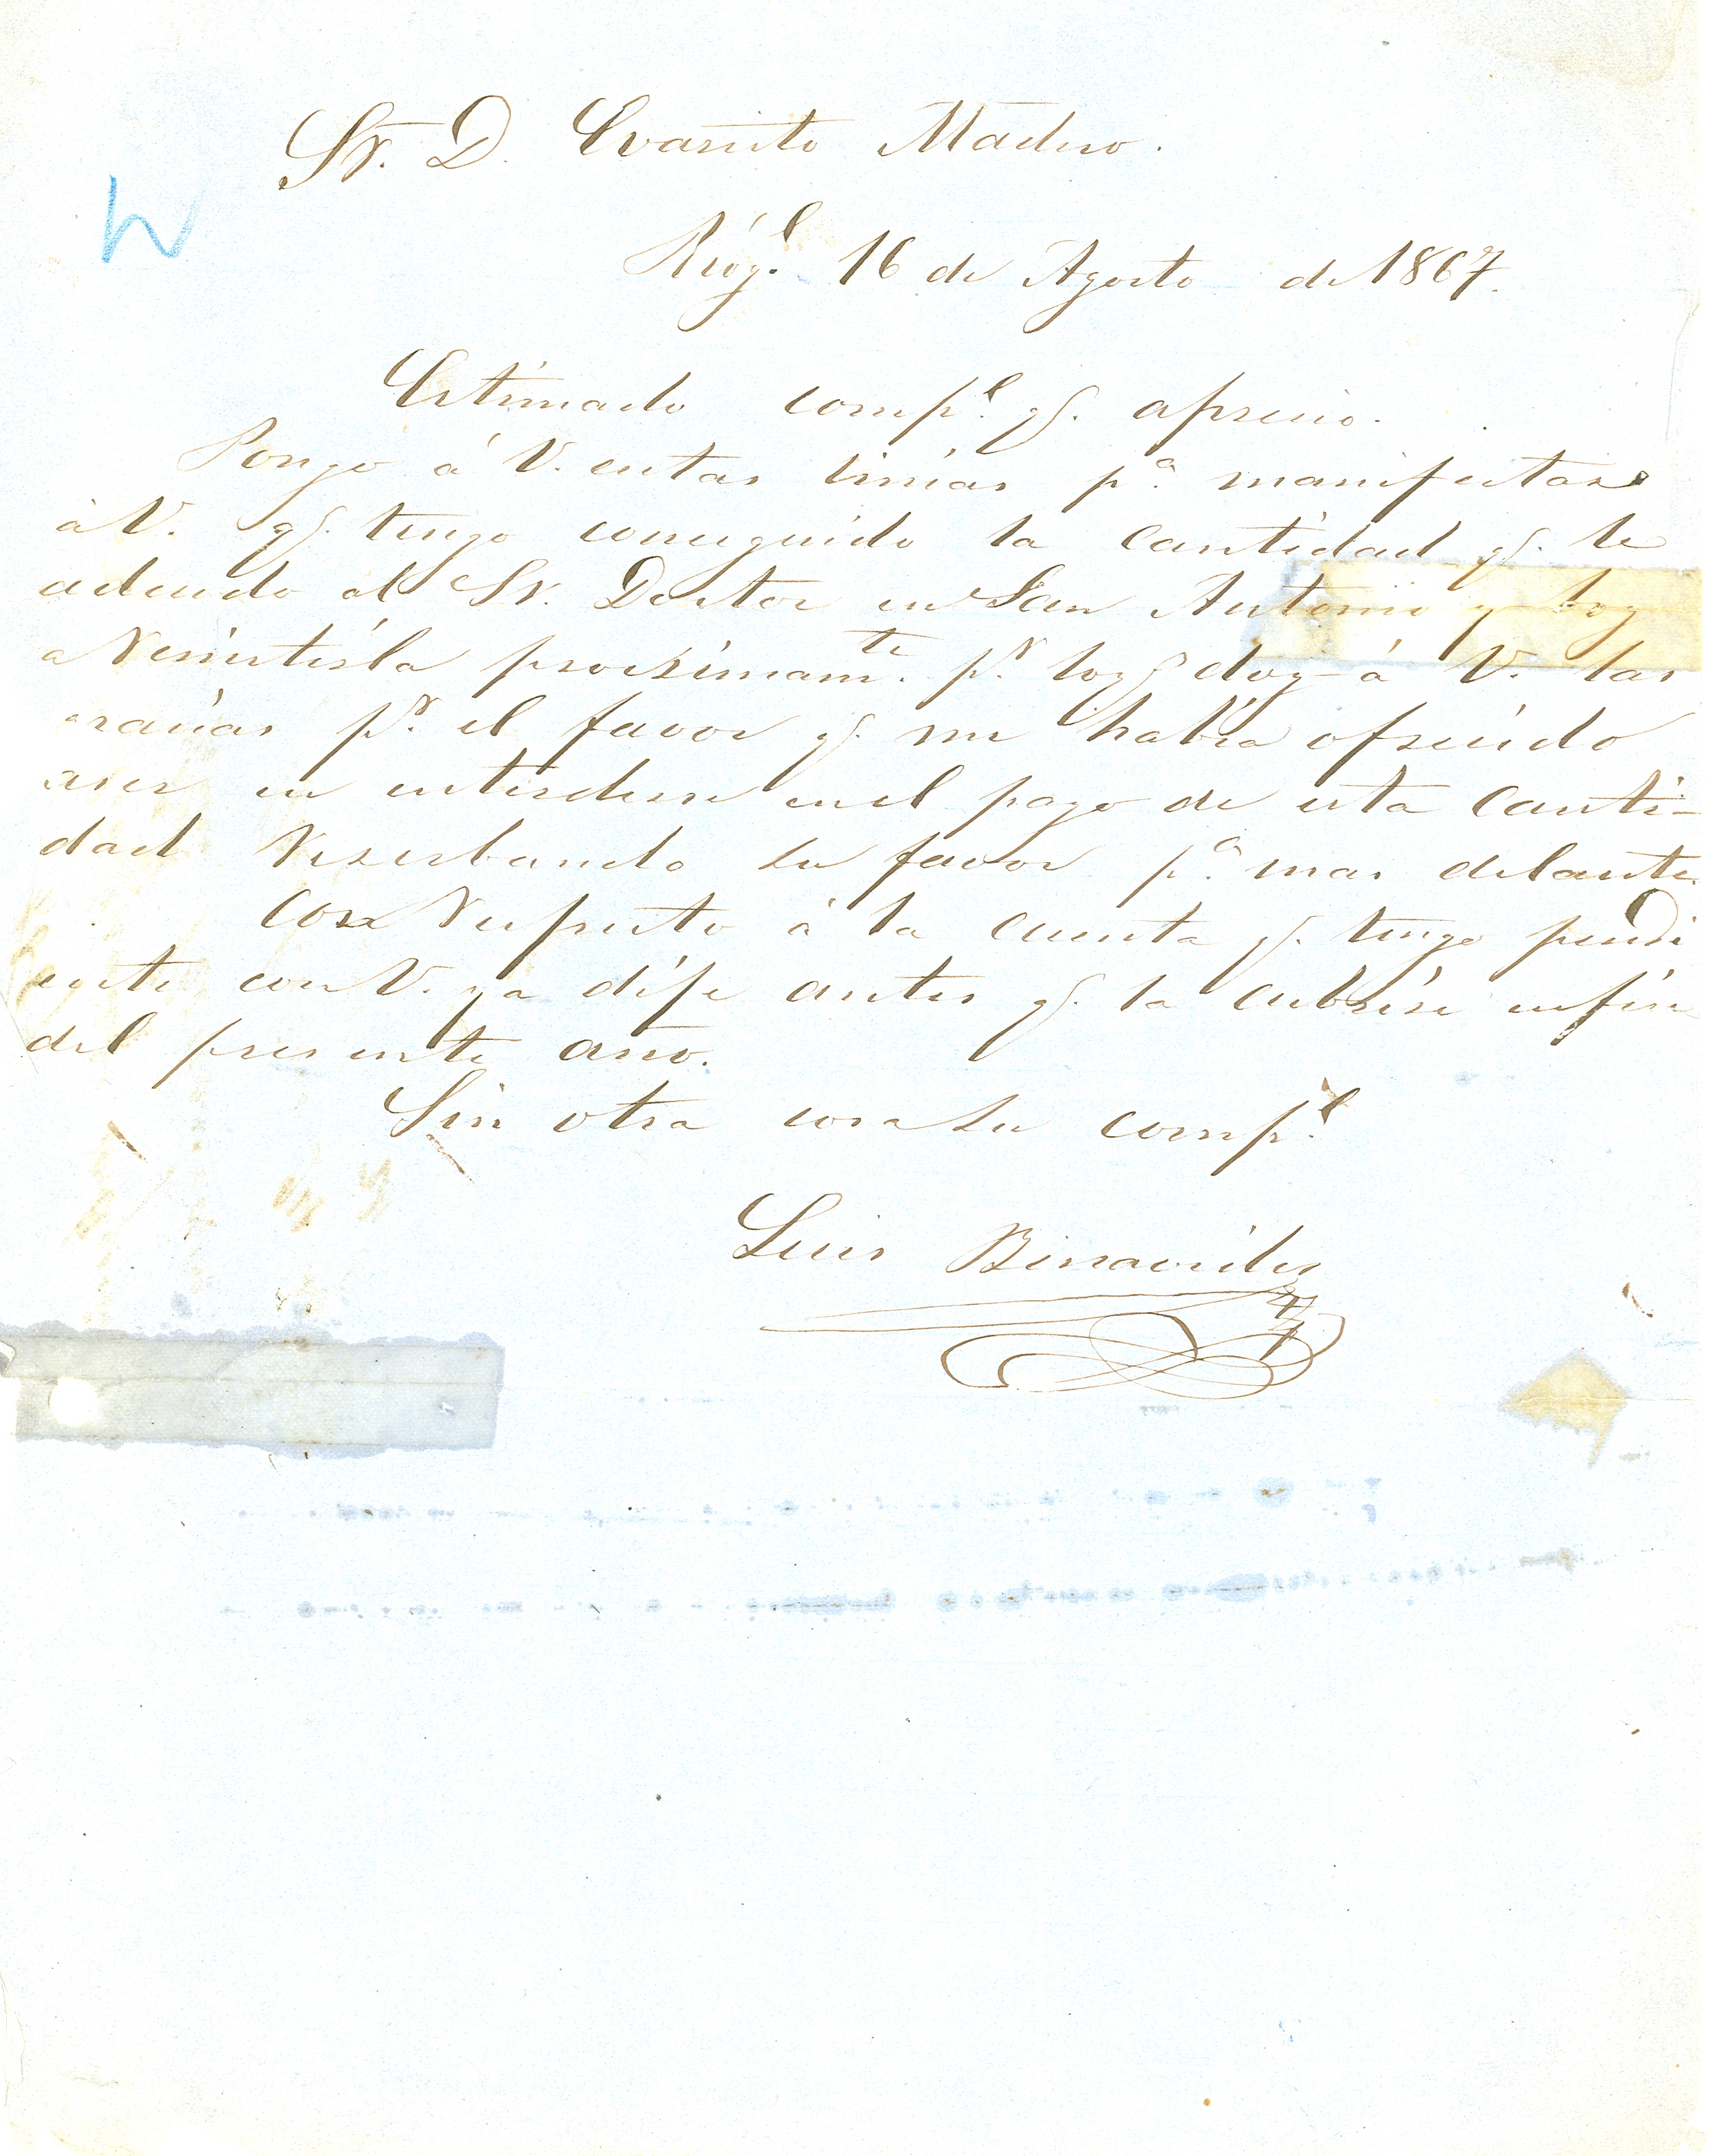 Sr. D. Evaristo Madero.
Ríog.l 16 de Agosto de 1867.
Estimado comp.e q. aprecio.
Pongo á V. estas linias p.a manifestar
á V. q. tengo conseguido la cantidad q. le
adeudo al Sr. Doctor en San Antonio y boy
a remitirla procsimam.te p.r loq doy á V. las
gracias p.r el favor q. me habia ofrecido
aser en entenderse en el pago de esta canti-
dad reserbando su favor p.a mas delante
Con respecto á la cuenta q. tengo pendi
ente con V. ya dije antes q. la cubrire enfin
del presente año.
Sin otra cosa su comp.e
Luis Benavides